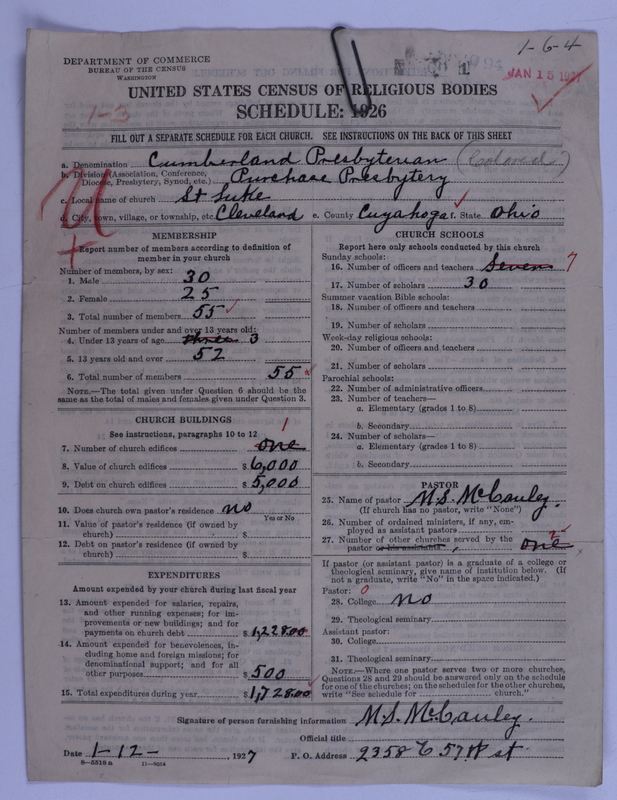 1-6-4
DEPARTMENT OF COMMERCE
BUREAU OF THE CENSUS
WASHINGTON
JAN 15 1927
UNITED STATES CENSUS OF RELIGIOUS BODIES
SCHEDULE: 1926
1-3
FILL OUT A SEPARATE SCHEDULE FOR EACH CHURCH. SEE INSTRUCTIONS ON THE BACK OF THIS SHEET
a. Denomination Cumberland Presbyterian (Colored)
b. Division (Association, Conference, Diocese, Presbytery, Synod, etc.) Purchase Presbytery
c. Local name of church St Luke
d. City, town, village, or township, etc. Cleveland e. County Cuyahoga f. State Ohio
MEMBERSHIP
Report number of members according to definition of
member in your church
Number of members, by sex:
1. Male 30
2. Female 25
3. Total number of members 55
Number of members under and over 13 years old:
4. Under 13 years of age three 3
5. 13 years old and over 52
6. Total number of members 55
NOTE.—The total given under Question 6 should be the
same as the total of males and females given under Question 3.
CHURCH BUILDINGS
See instructions, paragraphs 10 to 12
7. Number of church edifices one 1
8. Value of church edifices $6,000
9. Debt on church edifices $5,000
10. Does church own pastor's residence no
Yes or No
11. Value of pastor's residence (if owned by
church) $
12. Debt on pastor's residence (if owned by
church) $
EXPENDITURES
Amount expended by your church during last fiscal year
13. Amount expended for salaries, repairs,
and other running expenses; for im-
provements or new buildings; and for
payments on church debt $1,228.00
14. Amount expended for benevolences, in-
cluding home and foreign missions; for
denominational support; and for all
other purposes $500
15. Total expenditures during year $1,728.00
CHURCH SCHOOLS
Report here only schools conducted by this church
Sunday schools:
16. Number of officers and teachers Seven 7
17. Number of scholars 30
Summer vacation Bible schools:
18. Number of officers and teachers
19. Number of scholars
Week-day religious schools:
20. Number of officers and teachers
21. Number of scholars
Parochial schools:
22. Number of administrative officers
23. Number of teachers—
a. Elementary (grades 1 to 8)
b. Secondary
24. Number of scholars—
a. Elementary (grades 1 to 8)
b. Secondary
PASTOR
25. Name of pastor M.S. McCauley.
(If church has no pastor, write "None")
26. Number of ordained ministers, if any, em-
ployed as assistant pastors
27. Number of other churches served by the
pastor or his assistants one 2
If pastor (or assistant pastor) is a graduate of a college or
theological seminary, give name of institution below. (If
not a graduate, write "No" in the space indicated.)
Pastor: 0
28. College no
29. Theological seminary
Assistant pastor:
30. College
31. Theological seminary
NOTE.—Where one pastor serves two or more churches,
Questions 28 and 29 should be answered only on the schedule
for one of the churches; on the schedules for the other churches,
write "See schedule for church."
Signature of person furnishing information M.S. McCauley.
Official title
Date 1-12- , 1927 P. O. Address 2358 E 57th st
8-5518a 11-9054